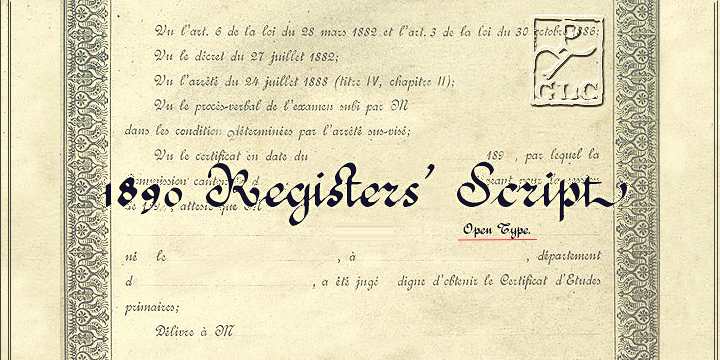 Vu l'art. 6 de la loi du 28 mars 1882 et l'art. 3 de la loi du 30 octobre 1886;
Vu le décret du 27 juillet 1882;
Vu l'arrêté du 24 juillet 1888 (titre IV, chapitre II);
Vu le procès-verbal de l'examen subi par M
dans les conditions déterminées par l'arrêté sus-visé;
Vu le certificat en date du 189 , par lequel la
1890 Registers' Script
atteste que M
Open Type.
né le , à , département
d , a été jugé digne d'obtenir le Certificat d'Etudes
primaires;
Délivre à M
P
GLC